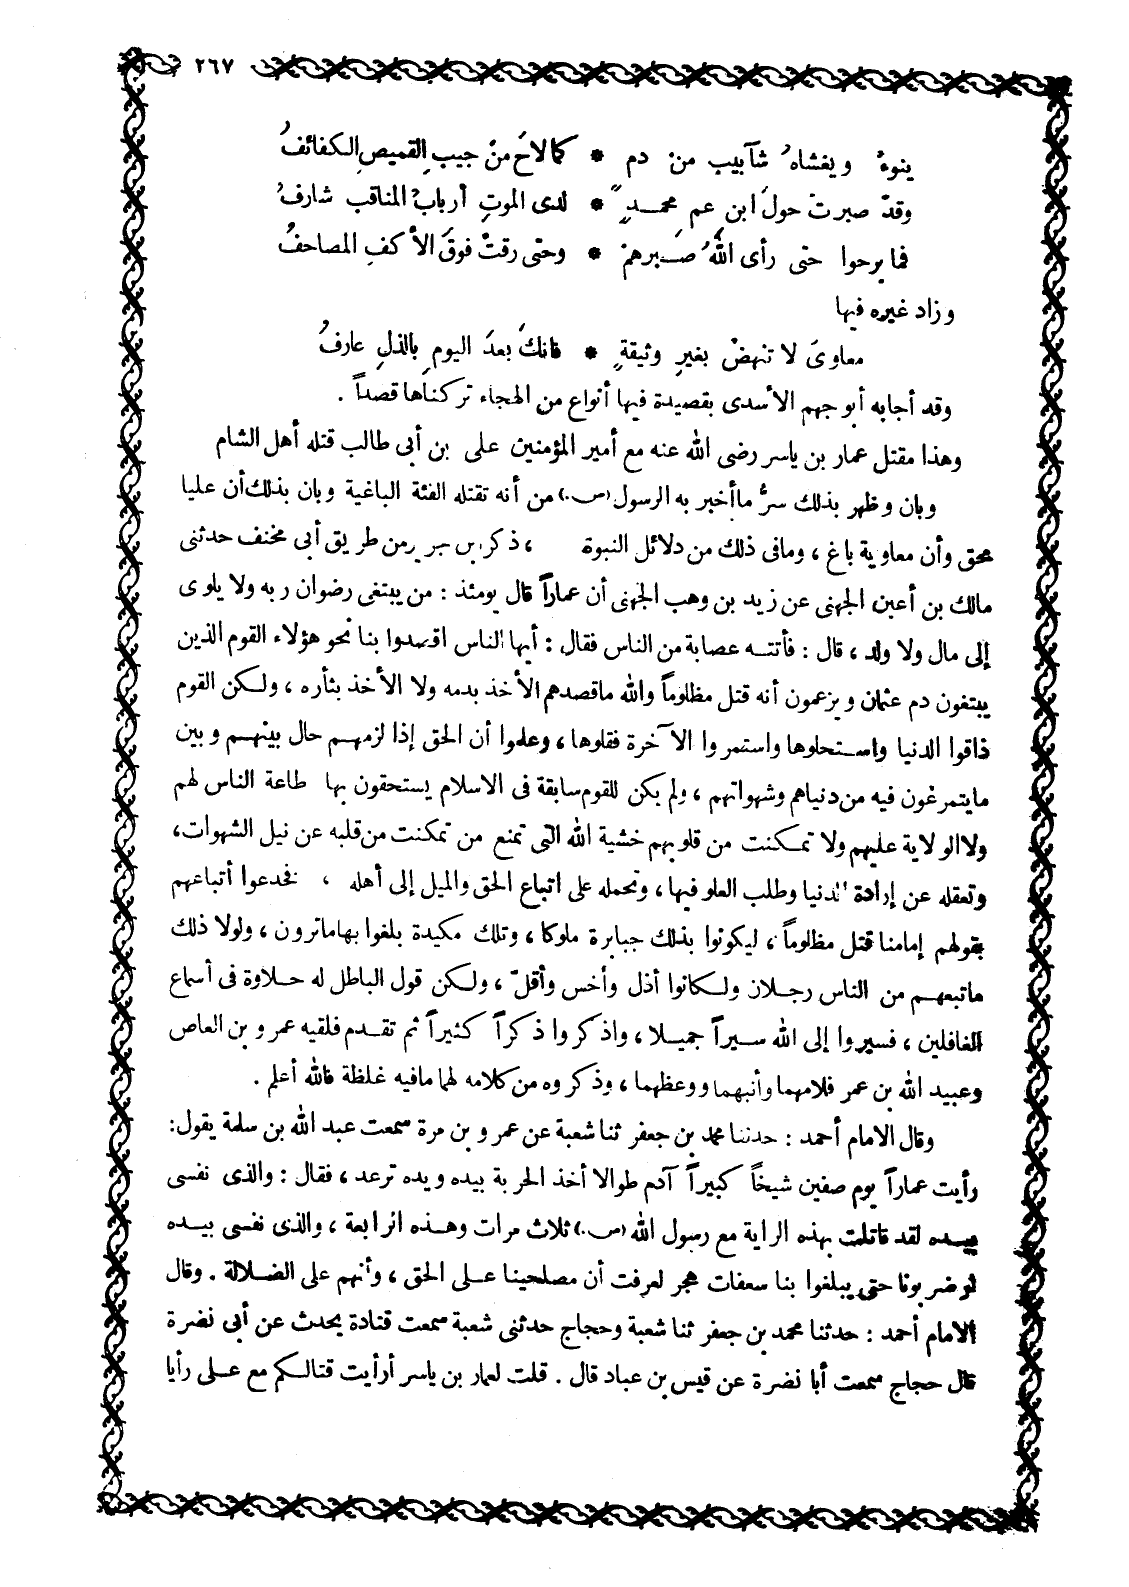 ٢٦٧
ينوءُ ويغشاهُ شآبيب من دم * كمالاحَ منْ جيبِ القميصِ الكفائفُ
وقدْ صبرتْ حولَ ابن عم محمدٍ * لدى الموتِ أربابُ المناقب شارفُ
فما برحوا حتى رأى اللهُ صَبرهمْ * وحتى رقتْ فوقَ الأكفِ المصاحفُ
وزاد غيره فيها
معاوىَ لا تنهضْ بغيرِ وثيقةٍ * فانكَ بعدَ اليومِ بالذلِ عارفُ
وقد أجابه أبو جهم الأسدى بقصيدة فيها أنواع من الهجاء تركناها قصداً .
وهذا مقتل عمار بن ياسر رضى الله عنه مع أمير المؤمنين على بن أبى طالب قتله أهل الشام
وبان وظهر بذلك سرُّ ماأخبر به الرسول (ص) من أنه تقتله الفئة الباغية وبان بذلك أن عليا
محق وأن معاوية باغ ، ومافى ذلك من دلائل النبوة ، ذكر بن جرير من طريق أبى مخنف حدثنى
مالك بن أعين الجهنى عن زيد بن وهب الجهنى أن عماراً قال يومئذ : من يبتغى رضوان ربه ولا يلوى
إلى مال ولا ولد ، قال : فأتته عصابة من الناس فقال : أيها الناس اقصدوا بنا نحو هؤلاء القوم الذين
يبتغون دم عثمان ويزعمون أنه قتل مظلوماً والله ماقصدهم الأخذ بدمه ولا الأخذ بثأره ، ولكن القوم
ذاقوا الدنيا واستحلوها واستمروا الآخرة فقلوها ، وعلموا أن الحق إذا لزمهم حال بينهم وبين
مايتمرغون فيه من دنياهم وشهواتهم ، ولم يكن للقوم سابقة فى الاسلام يستحقون بها طاعة الناس لهم
ولا الولاية عليهم ولا تمكنت من قلوبهم خشية الله التى تمنع من تمكنت من قلبه عن نيل الشهوات،
وتعقله عن إرادة الدنيا وطلب العلو فيها ، وتحمله على اتباع الحق والميل إلى أهله ، فخدعوا أتباعهم
بقولهم إمامنا قتل مظلوماً ، ليكونوا بذلك جبابرة ملوكا ، وتلك مكيدة بلغوا بها ماترون ، ولولا ذلك
ماتبعهم من الناس رجلان ولكانوا أذل وأخس وأقلّ ، ولكن قول الباطل له حلاوة فى أسماع
الغافلين ، فسيروا إلى الله سيراً جميلا ، واذكروا ذكراً كثيراً ثم تقدم فلقيه عمرو بن العاص
وعبيد الله بن عمر فلامهما وأنبهما ووعظهما ، وذكروه من كلامه لهما مافيه غلظة فالله أعلم .
وقال الامام أحمد : حدثنا محمد بن جعفر ثنا شعبة عن عمرو بن مرة سمعت عبد الله بن سلمة يقول:
رأيت عماراً يوم صفين شيخاً كبيراً آدم طوالا أخذ الحربة بيده ويده ترعد ، فقال : والذى نفسى
بيده لقد قاتلت بهذه الراية مع رسول الله (ص) ثلاث مرات وهذه الرابعة ، والذى نفسى بيده
لو ضربونا حتى يبلغوا بنا سعفات هجر لعرفت أن مصلحينا على الحق ، وأنهم على الضلالة . وقال
الامام أحمد : حدثنا محمد بن جعفر ثنا شعبة وحجاج حدثنى شعبة سمعت قتادة يحدث عن أبى نضرة
قال حجاج سمعت أبا نضرة عن قيس بن عباد قال . قلت لعمار بن ياسر أرأيت قتالكم مع على رأيا